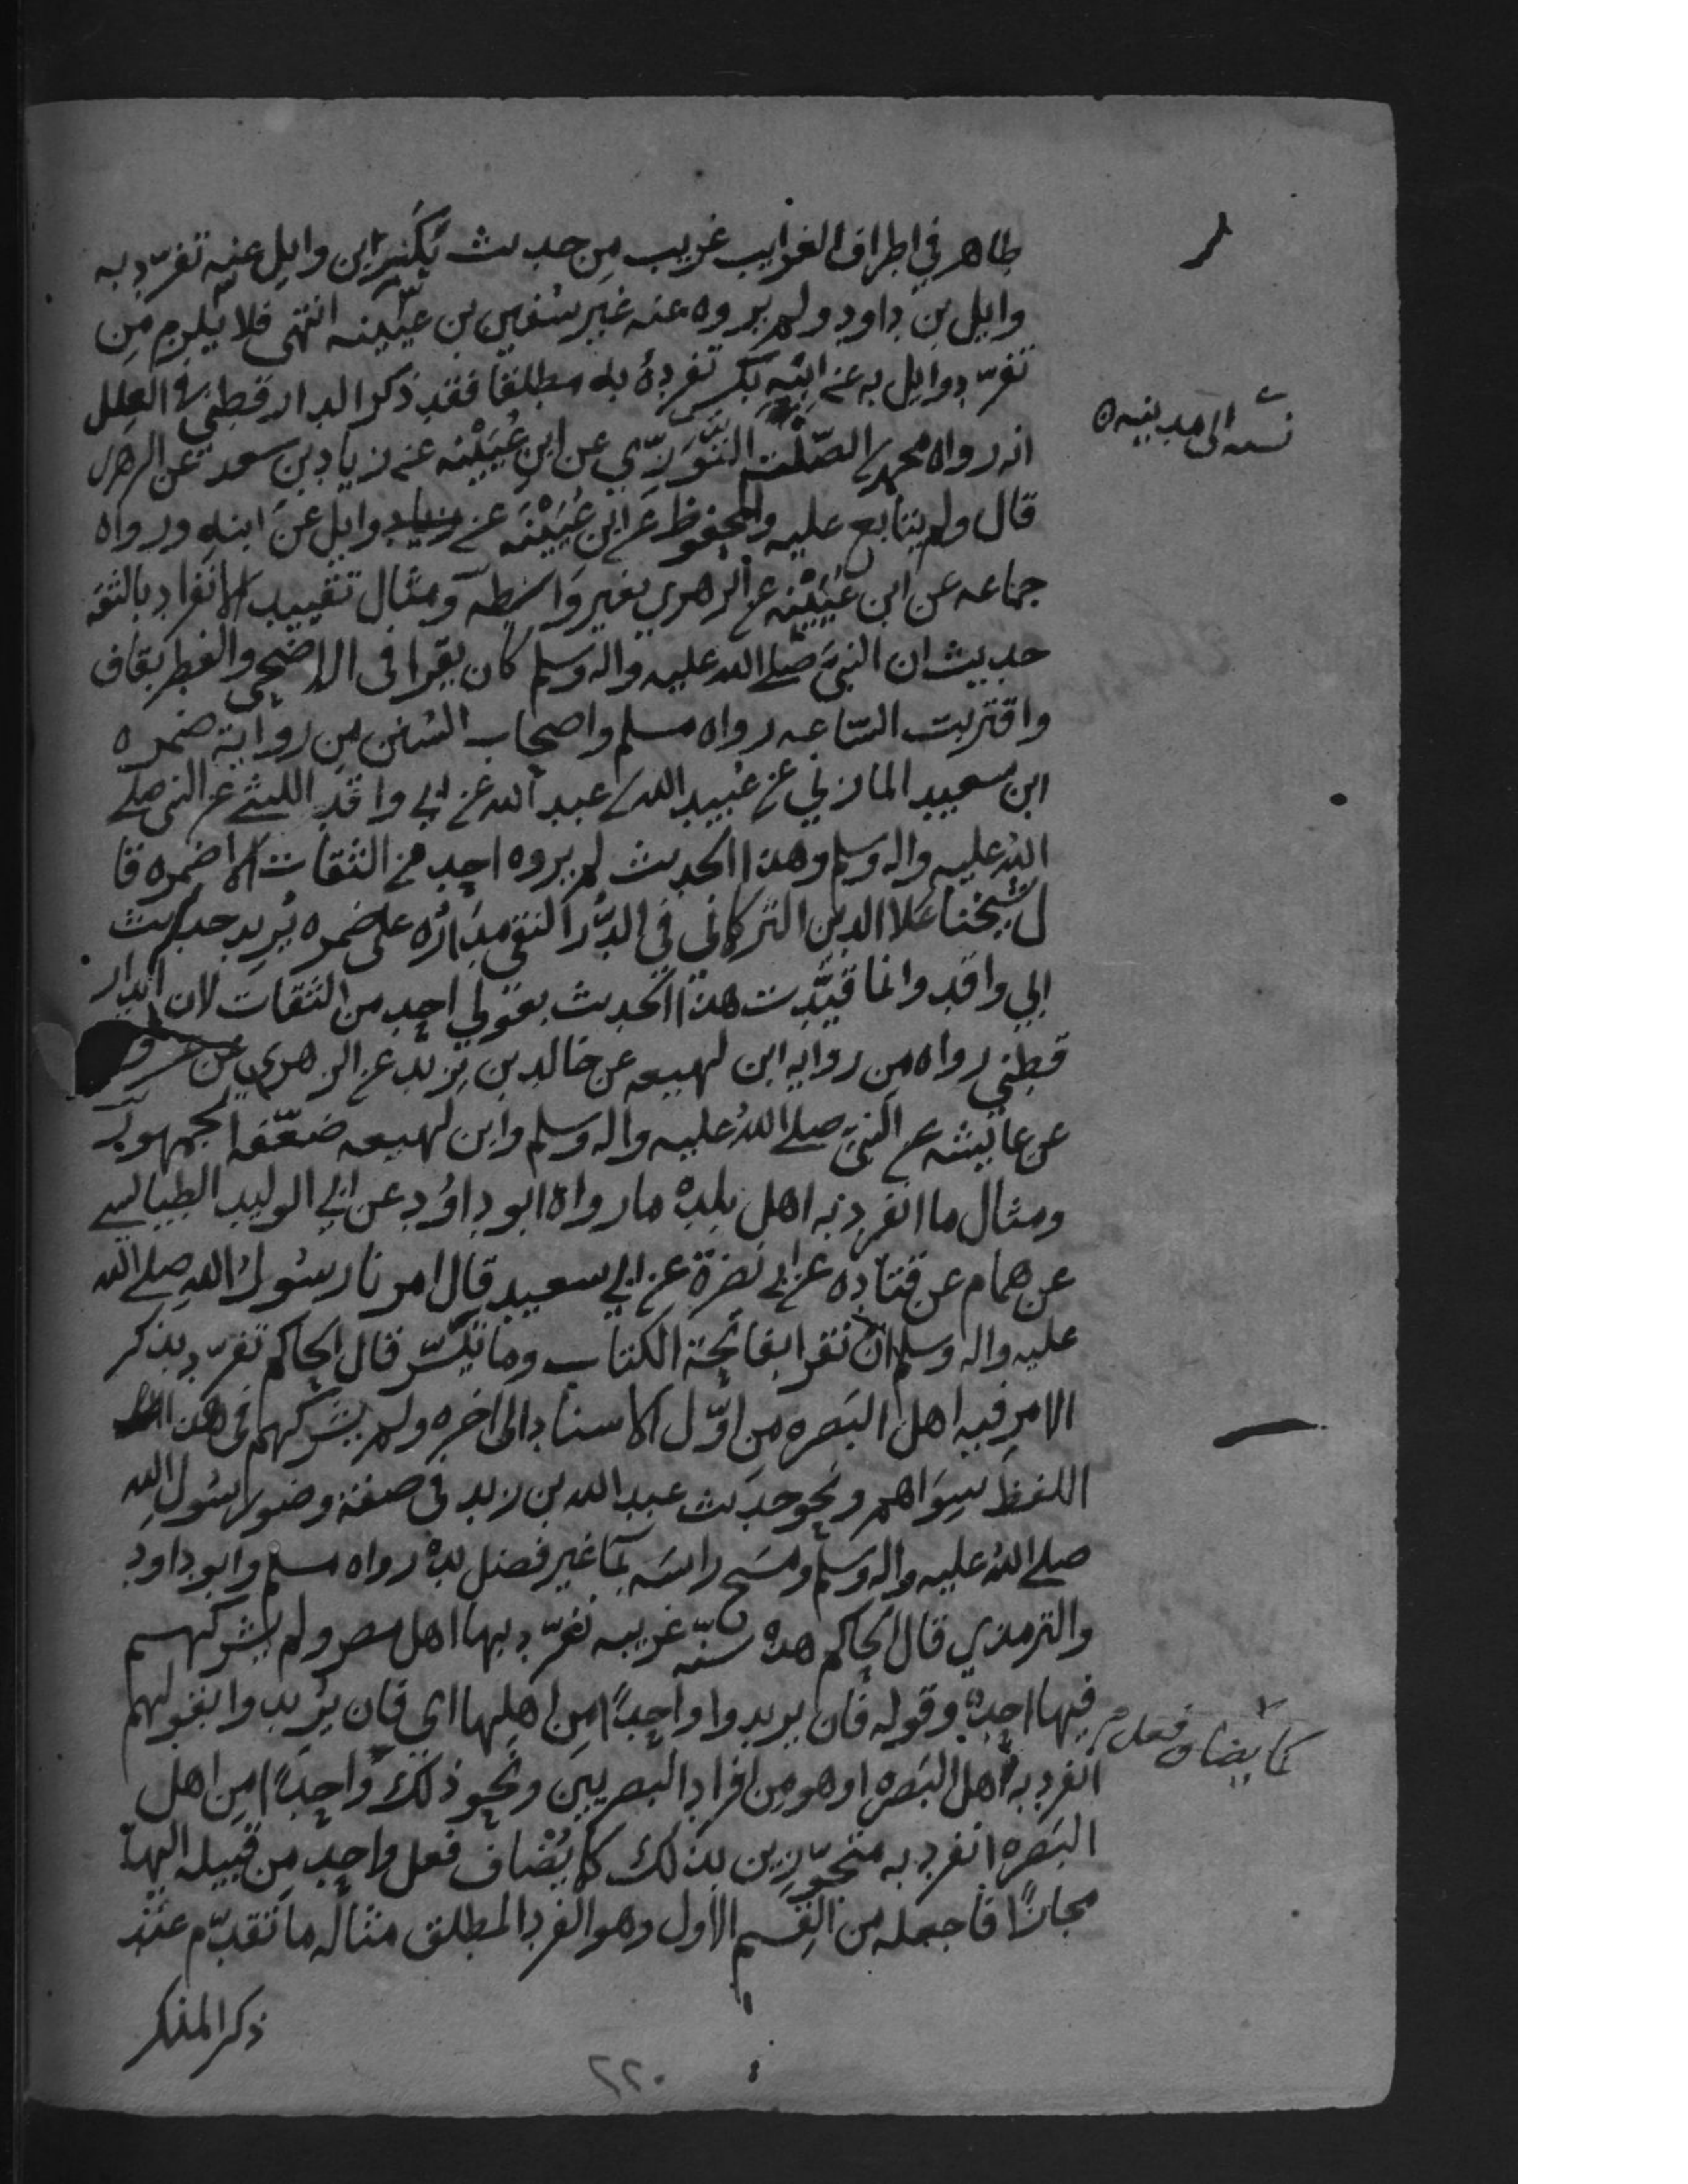 طاهر في اطراف الغرايب غريب من حديث بكر ابن وايل عنه تفرّد به
وايل بن داود ولم يروه عنه غير سفين بن عيينه انتهى فلا يلزم من
تفرّد وايل به عن ابنه بكر تفرده به مطلقا فقد ذكر الدارقطني في العلل
انه رواه محمد بن الصّلت التَّوَّزِي عن ابن عُيَيْنه عن زياد بن سعد عن الزهري
قال ولم يتابع عليه والمحفوظ عن ابن عُيَيْنَه عن وايل عن ابنه ورواه
جماعه عن ابن عُيَيْنه عن الزهري بغير واسطه ومثال تقييد الانفراد بالثقه
حديث ان النبي صلى الله عليه واله وسلم كان يقرا في الاضحى والفطر بقاف
واقتربت الساعه رواه مسلم واصحاب السنن من رواية ضمره
ابن سعيد المازني عن عُبيد الله بن عبد الله عن ابي واقد الليثي عن النبي صلى
الله عليه واله وسلم وهذا الحديث لم يروه احد من الثقات الا ضمره قا
ل شيخنا علا الدين التركماني في الدُّر النقي مدَارُه على ضمره يُريد حديث
ابي واقد وانما قيّدت هذا الحديث بقولي احد من الثقات لان الدار
قطني رواه من روايه ابن لهيعه عن خالد بن يزيد عن الزهري عن عروه
عن عايشه عن النبي صلى الله عليه واله وسلم وابن لهيعه ضعّفه الجمهور
ومثال ما انفرد به اهل بلده ما رواه ابو داوُد عن ابي الوليد الطيالسي
عن همام عن قتاده عن ابي نضرة عن ابي سعيد قال امرنا رسول الله صلى الله
عليه واله وسلم ان نقرا بفاتحة الكتاب وما تيسّر قال الحاكم تفرّد بذكر
الامر فيه اهل البصره من اوّل الاسناد الى اخره ولم يشركهم في هذا
اللفظ سِوَاهم ونحو حديث عبد الله بن زيد في صفة وضو رسُول الله
صلى الله عليه واله وسلم ومسح راسَه بمآ غير فضل يده رواه مسلم وابو داود
والترمذي قال الحاكم هذه سنّه غريبه تفرّد بها اهل مصر ولم يشركهم
فيها احد وقوله فان يريدوا واحِدًا من اهلها اي فان يُريدوا بقولهم
انفرد به اهل البصره او هو من افراد البصريين ونحو ذلك واحدًا من اهل
البصره انفرد به متجوّزين بذلك كما يُضاف فعل واحد من قبيله اليها
مجازًا فاجعله من القِسم الاول وهو الفرد المطلق مثاله ما تقدّم عند
ذكر المنكر
كما يضاف فعل
٢٢٠